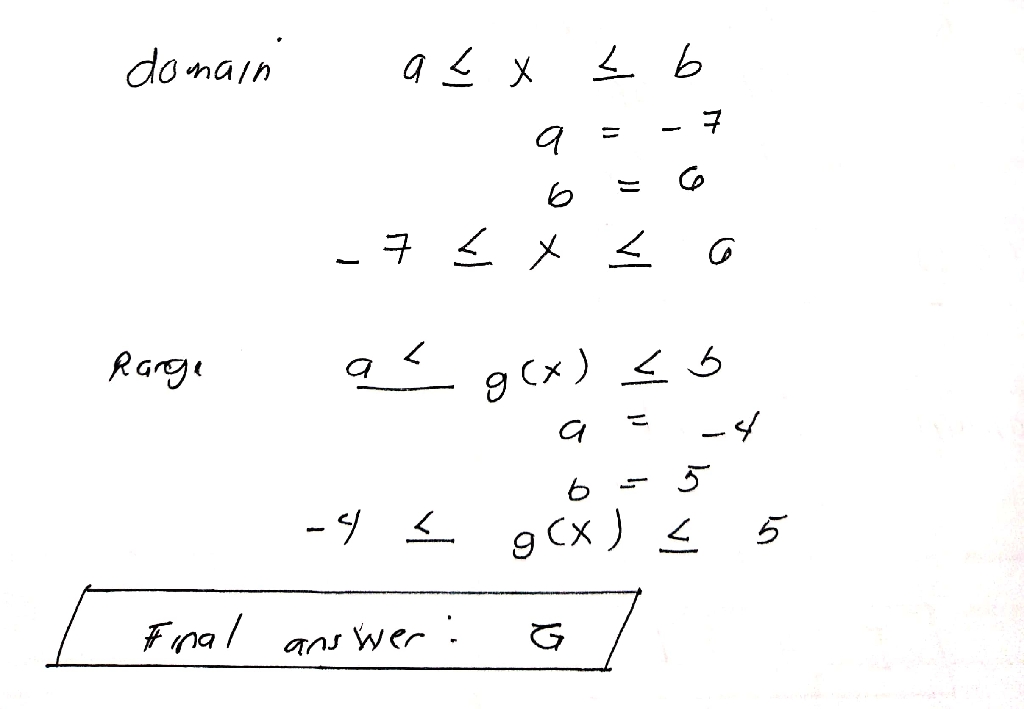 domain a ≤ x ≤ b
a = -7
b = 6
-7 ≤ x ≤ 6
Range a ≤ g(x) ≤ b
a = -4
b = 5
-4 ≤ g(x) ≤ 5
Final answer: G